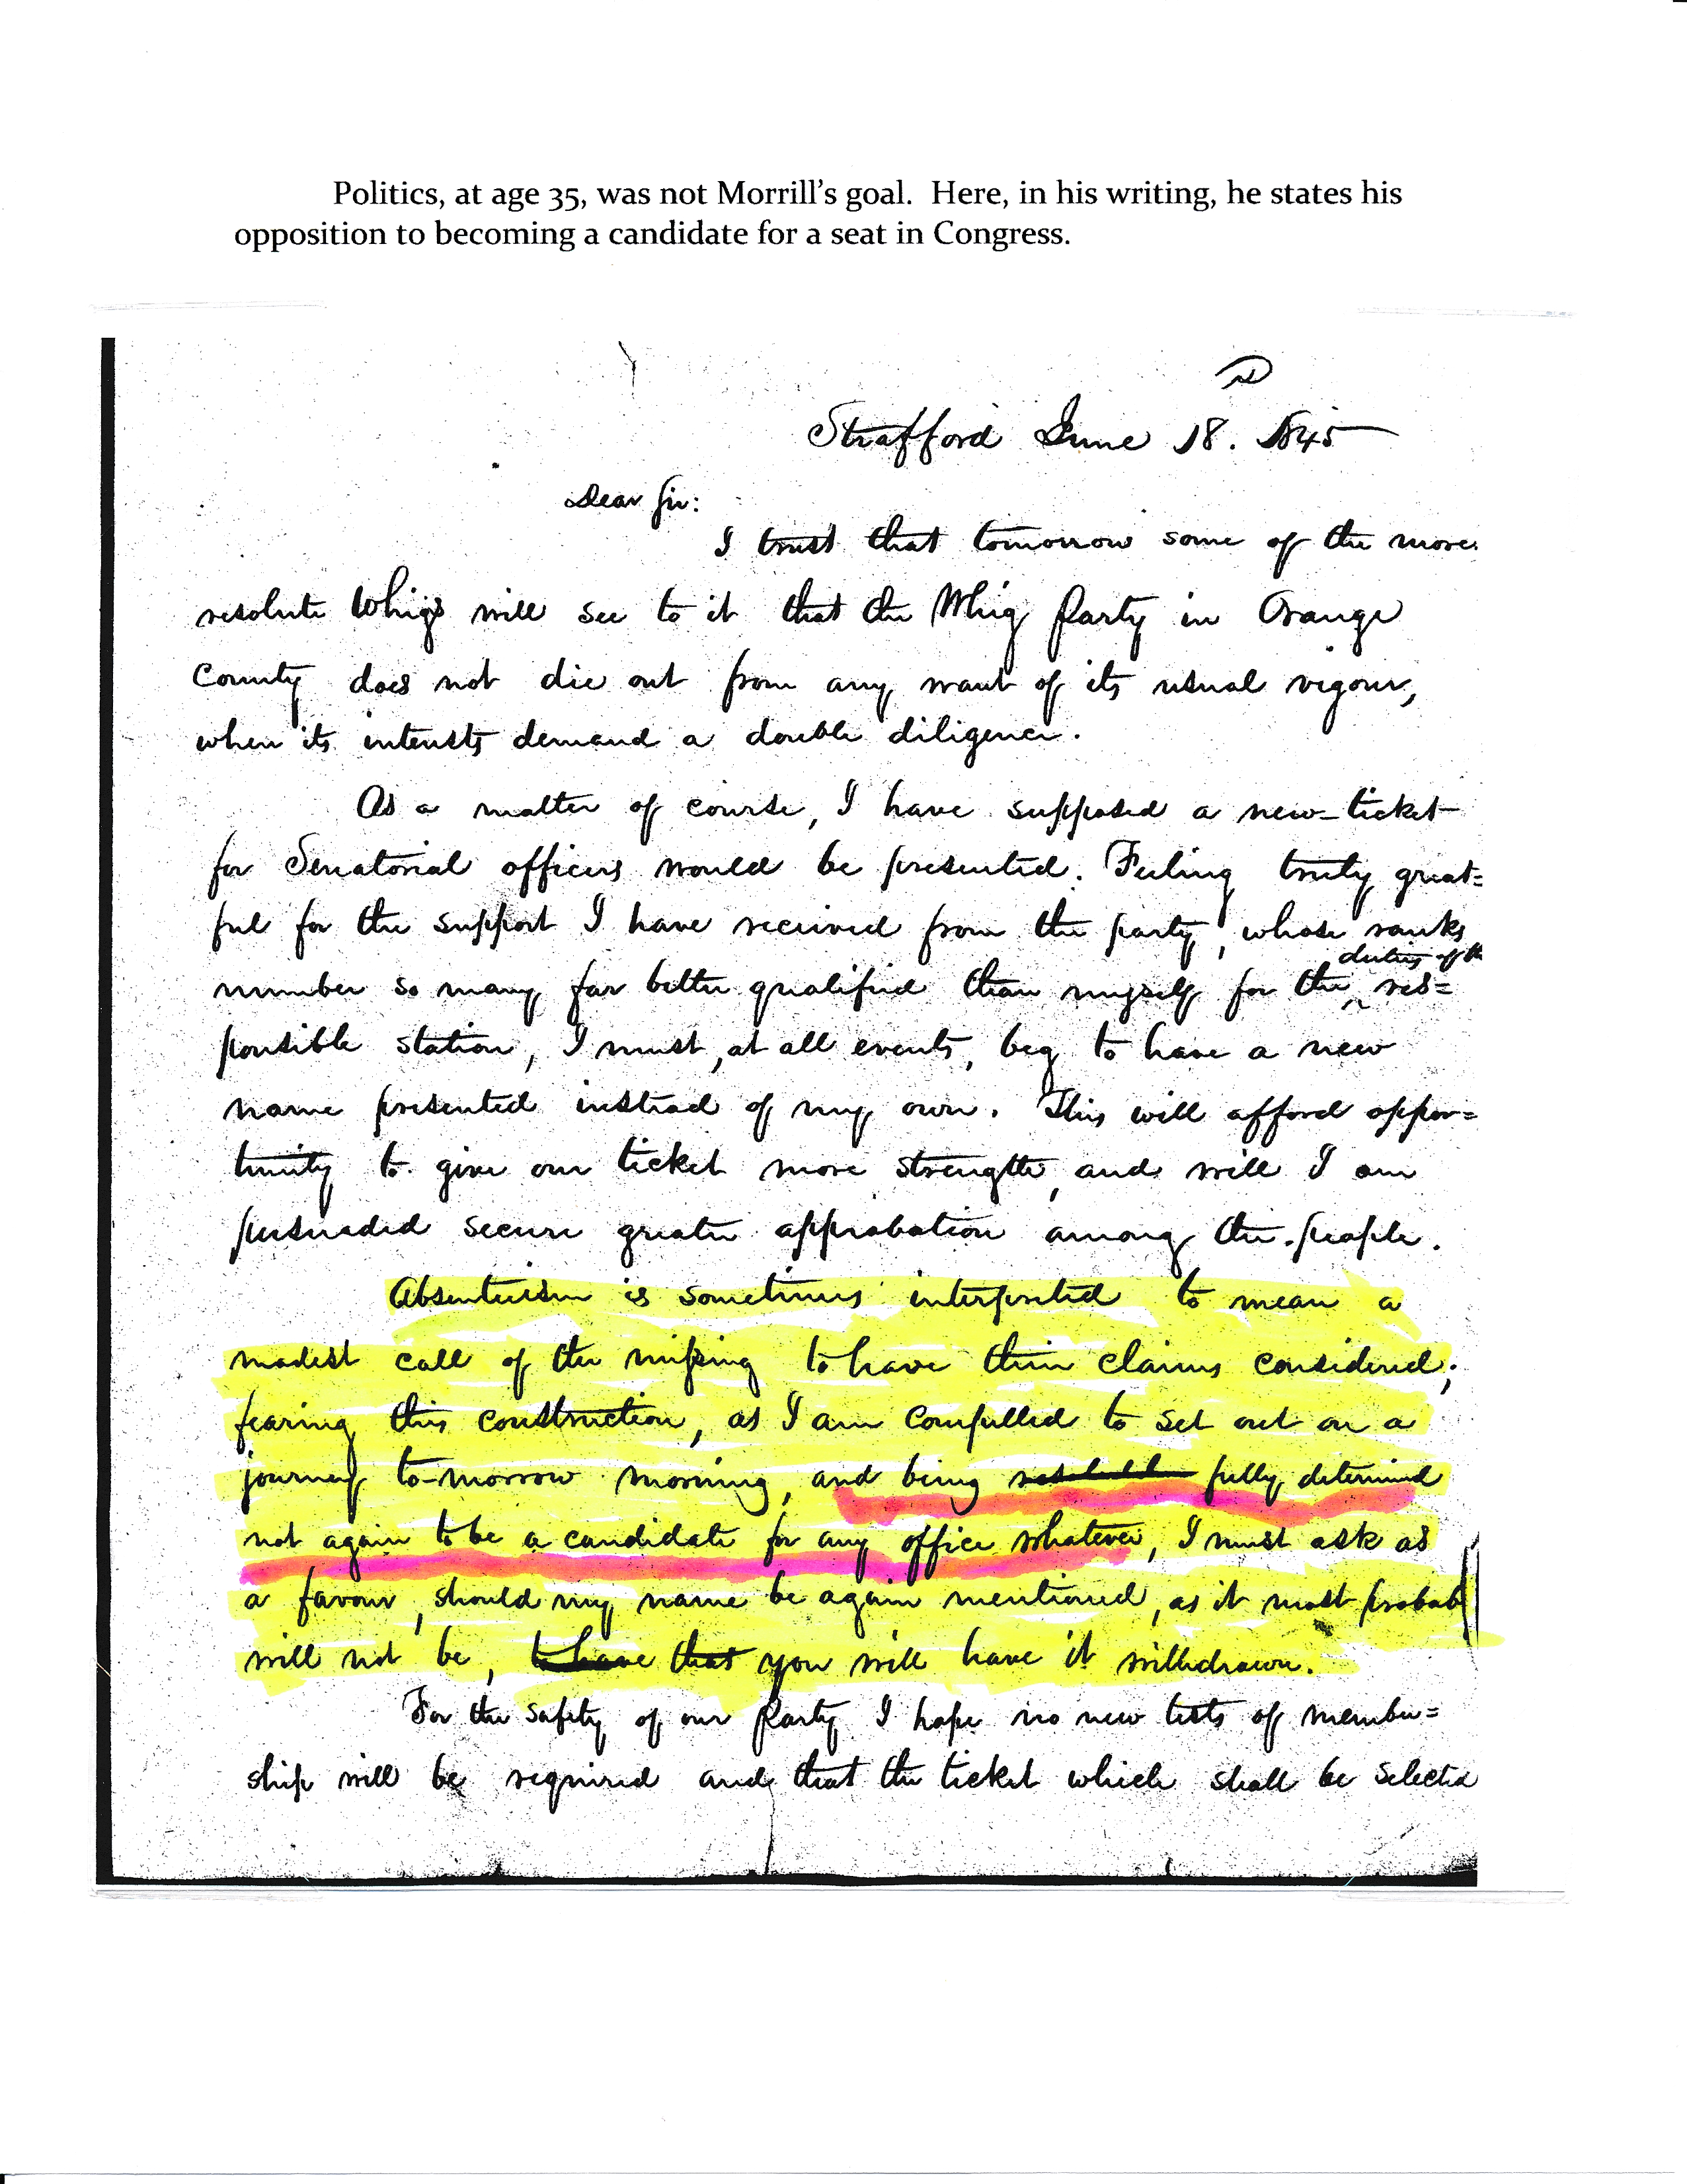 Politics, at age 35, was not Morrill’s goal.  Here, in his writing, he states his
opposition to becoming a candidate for a seat in Congress.
Strafford June 18. 1845
Dear Sir:
I trust that tomorrow some of the more
resolute Whigs will see to it that the Whig Party in Orange
County does not die out from any want of its usual vigour,
when its interests demand a double diligence.
As a matter of course, I have supposed a new ticket
for Senatorial officers would be presented. Feeling truly great=
ful for the support I have received from the party, whose ranks
duties of th
number so many far better qualified than myself for the ‸ res=
ponsible station, I must, at all events, beg to have a new
name presented instead of my own. This will afford oppor=
tunity to give our ticket more strength, and will I am
persuaded secure greater approbation among the people.
Absenteeism is sometimes interpreted to mean a
modest call of the missing to have their claims considered;
fearing this construction, as I am compelled to set out on a
journey to-morrow morning, and being fully determined
not again to be a candidate for any office whatever, I must ask as
a favour, should my name be again mentioned, as it most probab
will not be, to have that you will have it withdrawn.
For the safety of our party I hope no new tests of member=
ship will be required and that the ticket which shall be selected